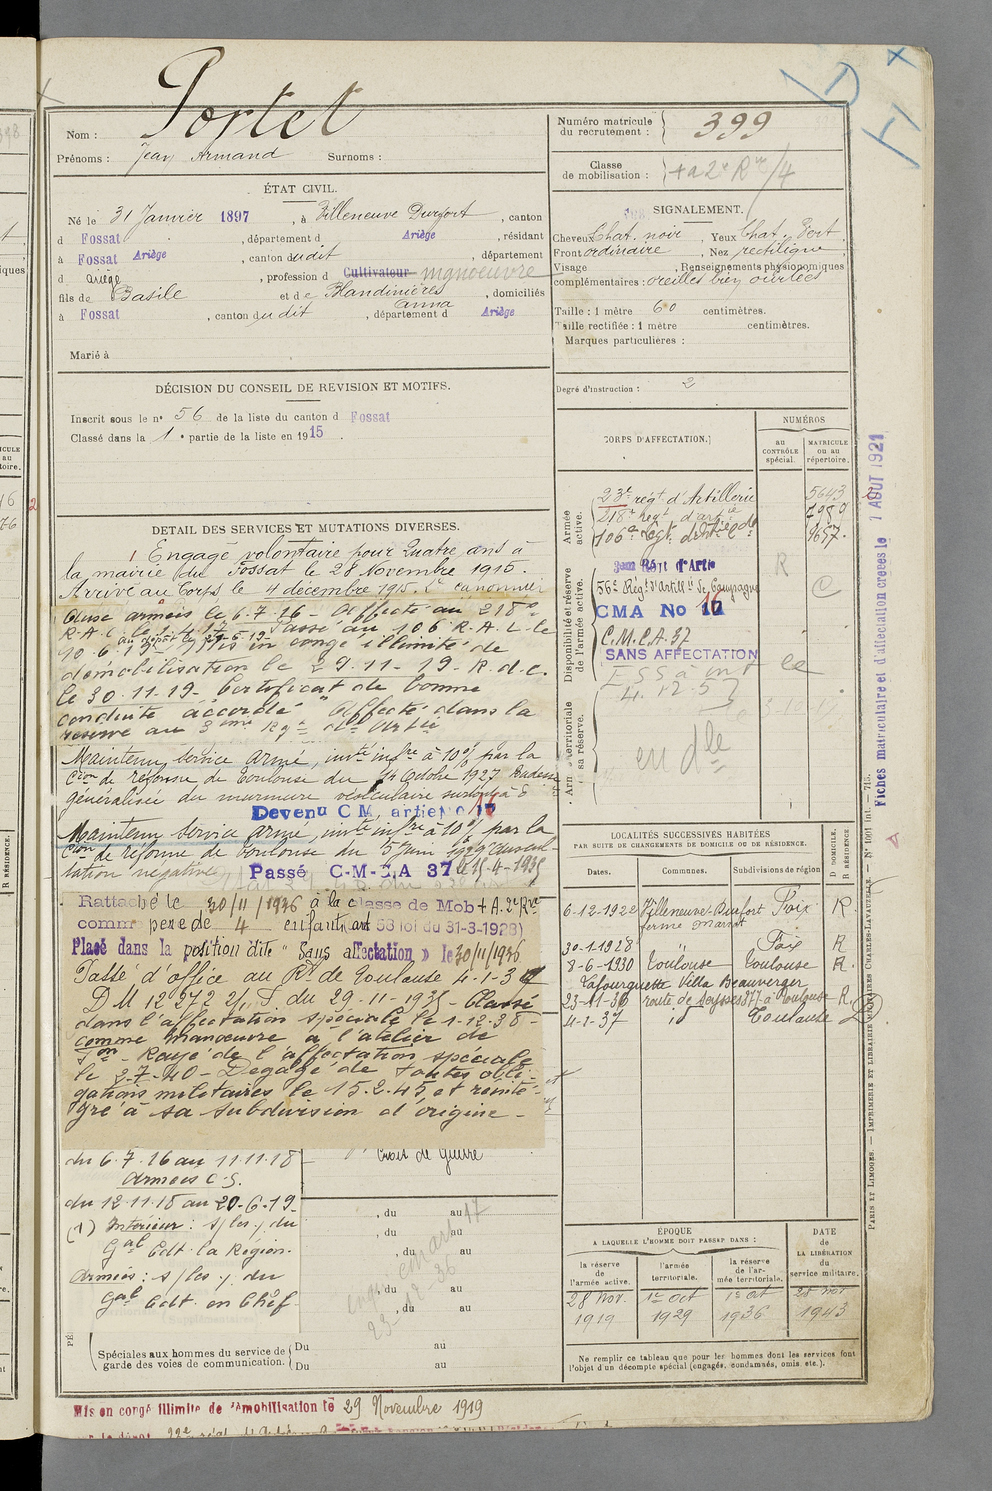 Nom : Portet
Prénoms : Jean Armand Surnoms :
Numéro matricule du recrutement : 399
Classe de mobilisation : + a 2e Rve/4
ÉTAT CIVIL.
Né le 31 Janvier 1897, à Villeneuve Durfort, canton
d Fossat, département d Ariège, résidant
à Fossat Ariège, canton dudit, département
d Ariège, profession d Cultivateur manoeuvre
fils de Basile et de Blandinières Anna, domiciliés
à Fossat, canton dudit, département d Ariège
Marié à
SIGNALEMENT.
Cheveux Chat. noir, Yeux Chat. Vert
Front ordinaire, Nez rectiligne
Visage , Renseignements physionomiques
complémentaires : oreilles bien ourlées
Taille : 1 mètre 60 centimètres.
Taille rectifiée : 1 mètre centimètres.
Marques particulières :
Degré d'instruction : 2
DÉCISION DU CONSEIL DE REVISION ET MOTIFS.
Inscrit sous le n° 56 de la liste du canton d Fossat
Classé dans la 1e partie de la liste en 1915.
DETAIL DES SERVICES ET MUTATIONS DIVERSES.
Engagé volontaire pour quatre ans à
la mairie du Fossat le 28 Novembre 1915.
Arrivé au Corps le 4 décembre 1915. 2e canonnier
Aux armées le 6.7.16 - Affecté au 218e
R.A.C. le 1.1.17 Passé au 106 R.A.L. le
10.6.19 Mis en congé illimité de
démobilisation le 29.11.19. R.d.c.
le 30.11.19 - Certificat de bonne
conduite "accordé" Affecté dans la
réserve au 3ème Rgt d'Artie
Maintenu service armé, invté infre à 10% par la
Cion de réforme de Toulouse du 14 Octobre 1927
généralisée du murmure vésiculaire
Devenu C M, artie No 17 16
Maintenu service armé, invté infre à 10% par la
Cion de réforme de Toulouse du 5 Juin 1929
tation négative
Passé C-M-A 37 le 15-4-1935
Rattaché le 30/11/1936 à la classe de Mob + A. 2e Rve
comme père de 4 enfants (art 58 loi du 31-3-1928)
Placé dans la position dite « Sans affectation » le 30/11/1936
Passé d'office au Rt de Toulouse 4-1-37
DM 12972 2/ du 29-11-1935 - Classé
dans l'affectation spéciale le 1-12-38 -
comme manoeuvre à l'atelier de
Ton - Rayé de l'affectation spéciale
le 2-7-40 - Dégagé de toutes obli-
gations militaires le 15.2.45 et réinté-
gré à sa subdivision d'origine -
du 6.7.16 au 11.11.18
Armées C.S.
du 12.11.18 au 20-6-19
(1) Intérieur : s/les / du
Gal Cdt la Région.
Armées : s/les / du
Gal Cdt en Chef
Croix de Guerre
, du au
, du au
, du au
, du au
, du au
Spéciales aux hommes du service de garde des voies de communication.
Du au
Du au
CORPS D'AFFECTATION.
NUMÉROS
AU CONTRÔLE spécial.
MATRICULE ou au répertoire.
Armée active.
23e régt d'Artillerie 5643
218e Regt d'artie 1989
106e Rgt d'artie 9657
Disponibilité et réserve de l'armée active.
3em Régt d'Artie R
56e Régt d'Artillie de Campagne
CMA No 17 16
C.M.A. 37
SANS AFFECTATION
4.12.57
Armée territoriale et sa réserve.
en dle
Fiches matriculaire et d'affectation créées le 1 AOUT 1921
LOCALITÉS SUCCESSIVES HABITÉES
PAR SUITE DE CHANGEMENTS DE DOMICILE OU DE RÉSIDENCE.
Dates. Communes. Subdivisions de région D DOMICILE. R RÉSIDENCE.
6-12-1922 Villeneuve-Durfort Foix R
ferme
30-1-1928 " Foix R
8-6-1930 Toulouse Toulouse R.
Lafourguette Villa Beauverger
23-11-36 route de Seysses 377 à Toulouse R.
4-1-37 id Toulouse D
ÉPOQUE
A LAQUELLE L'HOMME DOIT PASSER DANS :
DATE de LA LIBÉRATION du service militaire.
la réserve de l'armée active.
l'armée territoriale.
la réserve de l'armée territoriale.
28 Nov. 1919
1er Oct 1929
1er Oct 1936
28 Nov 1943
Ne remplir ce tableau que pour les hommes dont les services font l'objet d'un décompte spécial (engagés, condamnés, omis, etc.).
PARIS ET LIMOGES. — IMPRIMERIE ET LIBRAIRIE MILITAIRES CHARLES-LAVAUZELLE. — N° 1001 int. — 715.
Mis en congé illimité de démobilisation le 29 Novembre 1919